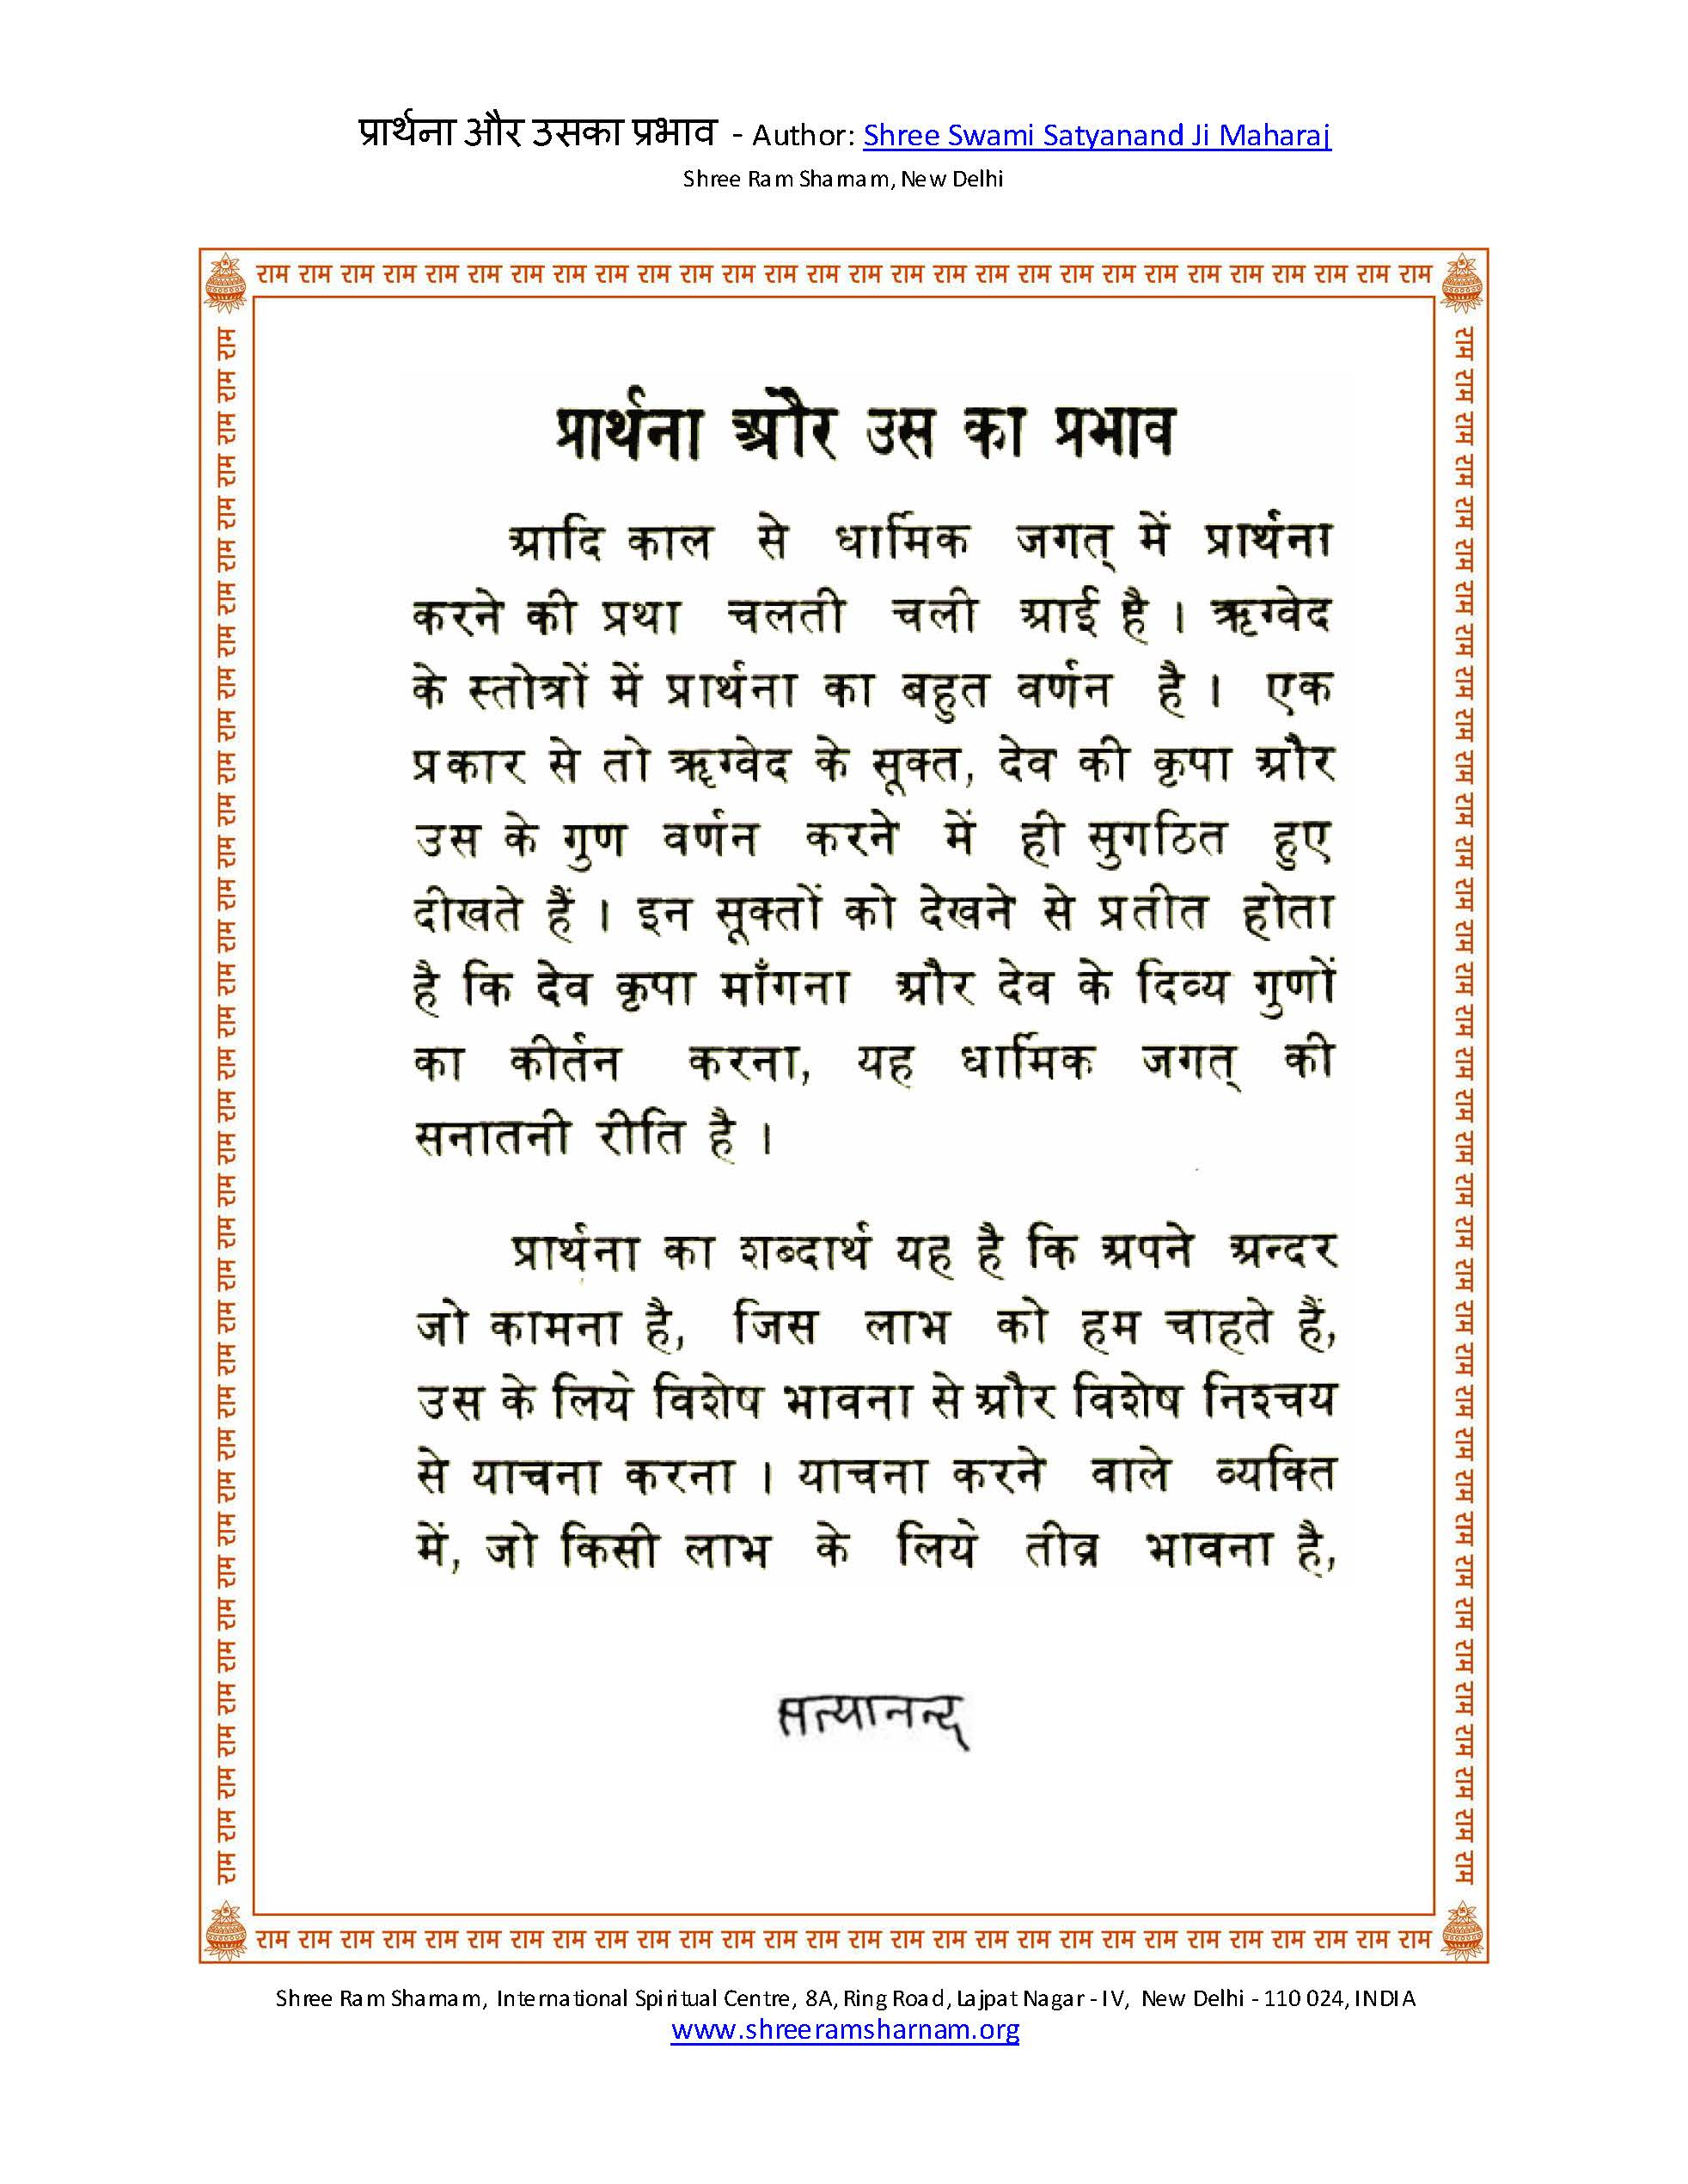 प्रार्थना और उसका प्रभाव - Author: Shree Swami Satyanand Ji Maharaj
Shree Ram Sharnam, New Delhi
राम राम राम राम राम राम राम राम राम राम राम राम राम राम राम राम राम राम राम राम राम राम राम राम राम राम राम राम
प्रार्थना और उस का प्रभाव
आदि काल से धार्मिक जगत् में प्रार्थना
करने की प्रथा चलती चली आई है । ऋग्वेद
के स्तोत्रों में प्रार्थना का बहुत वर्णन है । एक
प्रकार से तो ऋग्वेद के सूक्त, देव की कृपा और
उस के गुण वर्णन करने में ही सुगठित हुए
दीखते हैं । इन सूक्तों को देखने से प्रतीत होता
है कि देव कृपा माँगना और देव के दिव्य गुणों
का कीर्तन करना, यह धार्मिक जगत् की
सनातनी रीति है ।
प्रार्थना का शब्दार्थ यह है कि अपने अन्दर
जो कामना है, जिस लाभ को हम चाहते हैं,
उस के लिये विशेष भावना से और विशेष निश्चय
से याचना करना । याचना करने वाले व्यक्ति
में, जो किसी लाभ के लिये तीव्र भावना है,
सत्यानन्द
राम राम राम राम राम राम राम राम राम राम राम राम राम राम राम राम राम राम राम राम राम राम राम राम राम राम राम राम
राम राम राम राम राम राम राम राम राम राम राम राम राम राम राम राम राम राम राम राम राम राम राम राम राम राम राम राम राम राम राम राम राम राम राम राम राम
राम राम राम राम राम राम राम राम राम राम राम राम राम राम राम राम राम राम राम राम राम राम राम राम राम राम राम राम राम राम राम राम राम राम राम राम राम
Shree Ram Sharnam, International Spiritual Centre, 8A, Ring Road, Lajpat Nagar - IV, New Delhi - 110 024, INDIA
www.shreeramsharnam.org